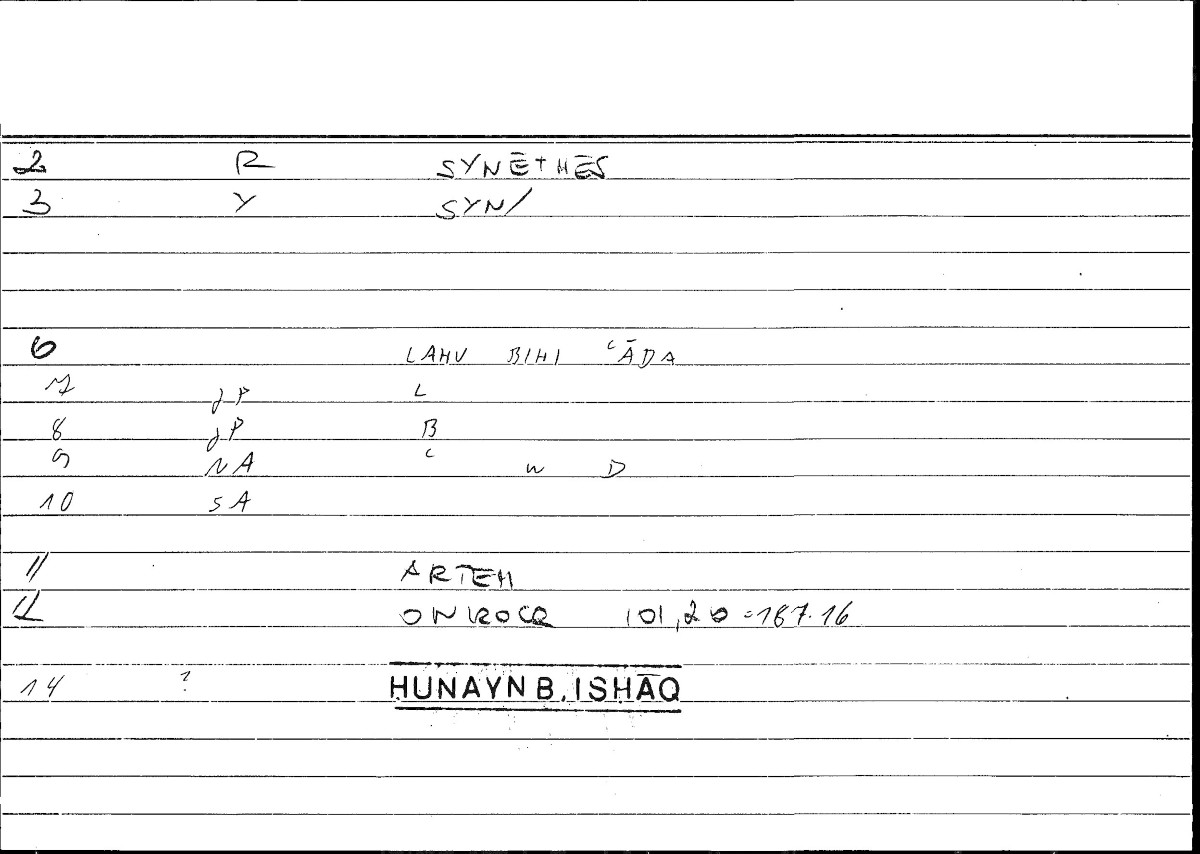 2 R SYNĒTHĒS
3 Y SYN/
6 LAHU BIHI ʿĀDA
7 JP L
8 JP B
9 NA ʿ W D
10 SA
11 ARTEM
12 ONIROCR 101,20=187.16
14 ? HUNAYN B. ISHĀQ